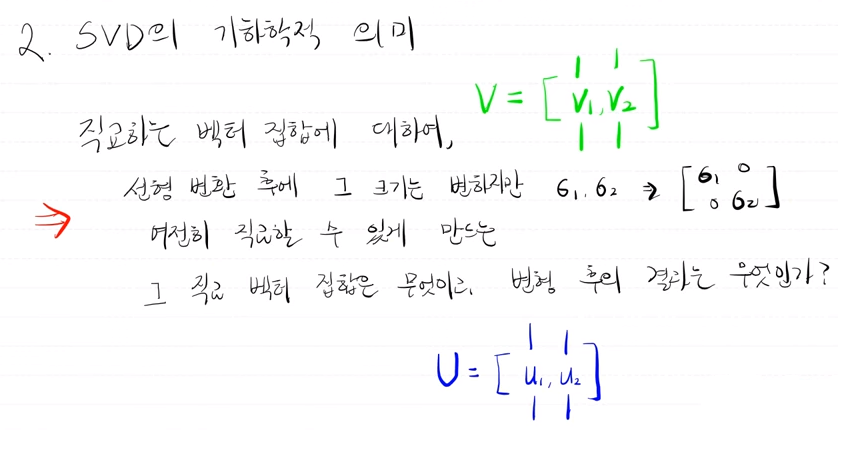 2. SVD의 기하학적 의미
V = [v₁, v₂]
직교하는 벡터 집합에 대하여,
선형 변환 후에 그 크기는 변하지만 σ₁, σ₂ → [σ₁ 0
0 σ₂]
⇒ 여전히 직교할 수 있게 만드는
그 직교 벡터 집합은 무엇이고, 변형 후의 결과는 무엇인가?
U = [u₁, u₂]